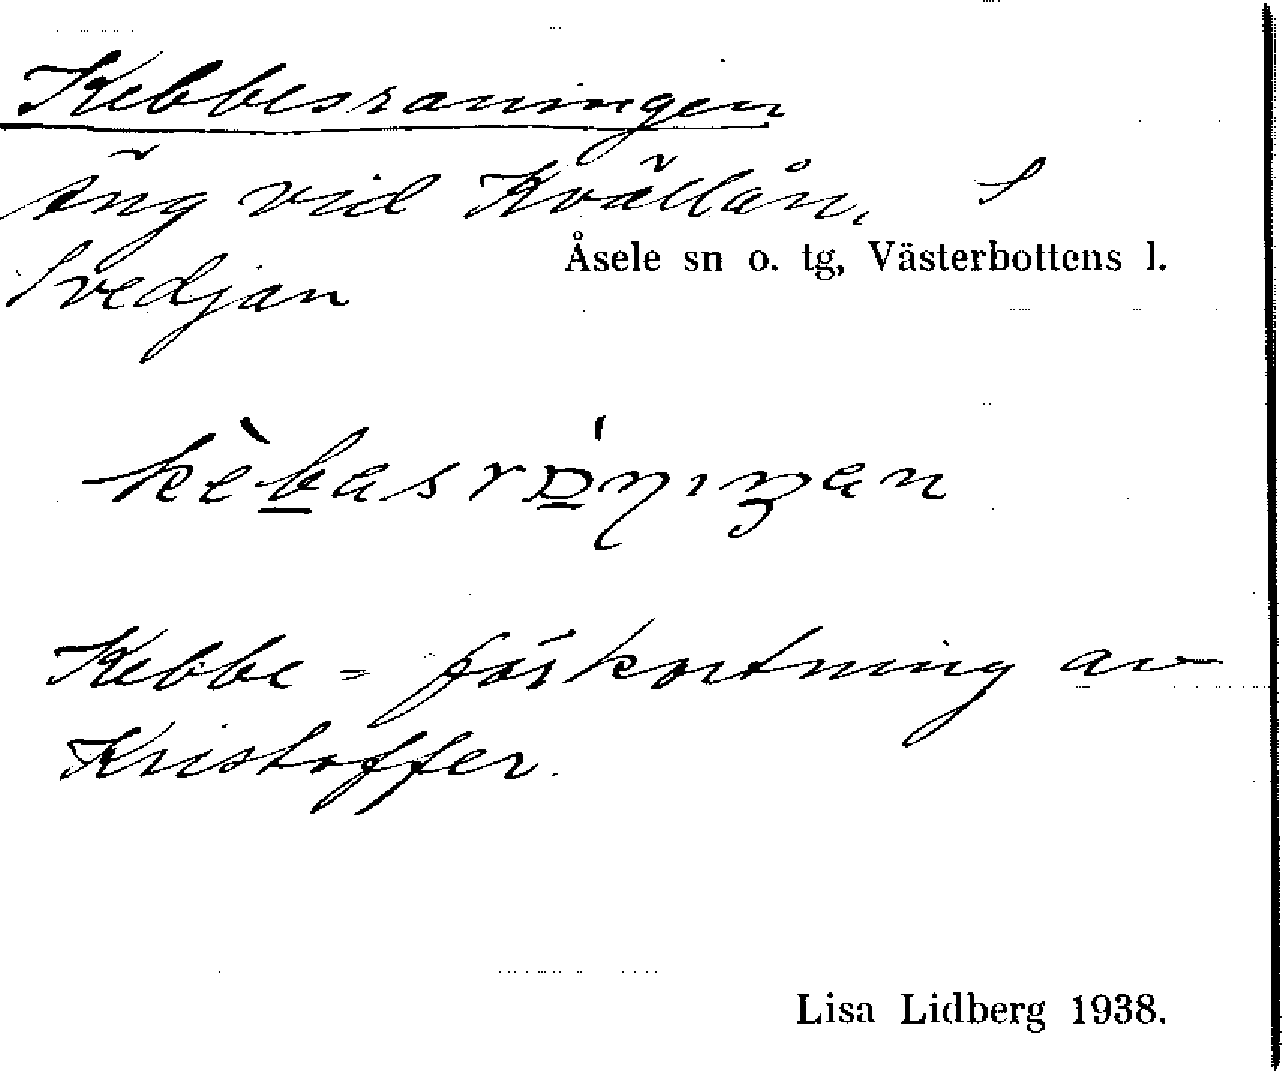 Kebbesraningen
äng vid Kvällån, S
Åsele sn o. tg, Västerbottens l.
Svedjan
Kebbe = förkortning av
Kristoffer.
Lisa Lidberg 1938.